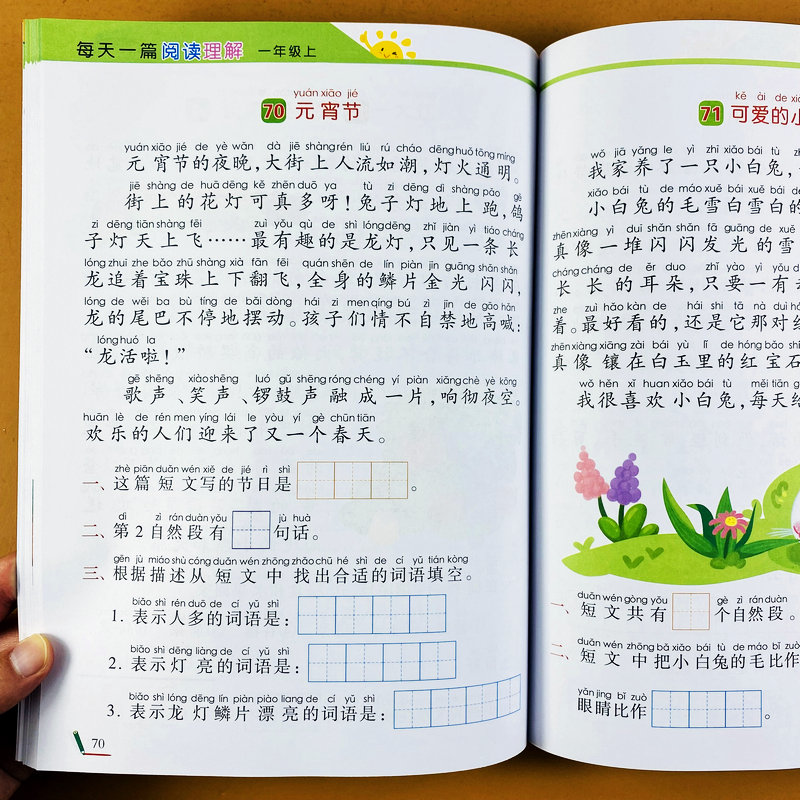 每天一篇 阅读理解 一年级上
yuán xiāo jié
70 元宵节
yuán xiāo jié de yè wǎn dà jiē shàng rén liú rú cháo dēng huǒ tōng míng
元宵节的夜晚，大街上人流如潮，灯火通明。
jiē shàng de huā dēng kě zhēn duō ya tù zi dēng dì shàng pǎo gē
街上的花灯可真多呀！兔子灯地上跑，鸽
zi dēng tiān shàng fēi zuì yǒu qù de shì lóng dēng zhǐ jiàn yì tiáo cháng
子灯天上飞……最有趣的是龙灯，只见一条长
lóng zhuī zhe bǎo zhū shàng xià fān fēi quán shēn de lín piàn jīn guāng shǎn shǎn
龙追着宝珠上下翻飞，全身的鳞片金光闪闪，
lóng de wěi ba bù tíng de bǎi dòng hái zi men qíng bú zì jīn de gāo hǎn
龙的尾巴不停地摆动。孩子们情不自禁地高喊：
lóng huó la
“龙活啦！”
gē shēng xiào shēng luó gǔ shēng róng chéng yí piàn xiǎng chè yè kōng
歌声、笑声、锣鼓声融成一片，响彻夜空。
huān lè de rén men yíng lái le yòu yí gè chūn tiān
欢乐的人们迎来了又一个春天。
zhè piān duǎn wén xiě de jié rì shì
一、这篇短文写的节日是。
dì zì rán duàn yǒu jù huà
二、第2自然段有句话。
gēn jù miáo shù cóng duǎn wén zhōng zhǎo chū hé shì de cí yǔ tián kòng
三、根据描述从短文中找出合适的词语填空。
biǎo shì rén duō de cí yǔ shì
1. 表示人多的词语是：
biǎo shì dēng liàng de cí yǔ shì
2. 表示灯亮的词语是：
biǎo shì lóng dēng lín piàn piào liang de cí yǔ shì
3. 表示龙灯鳞片漂亮的词语是：
70
kě ài de xiǎo
71 可爱的小
wǒ jiā yǎng le yì zhī xiǎo bái tù
我家养了一只小白兔，
xiǎo bái tù de máo xuě bái xuě bái de
小白兔的毛雪白雪白的
zhēn xiàng yì duī shǎn shǎn fā guāng de xuě
真像一堆闪闪发光的雪
cháng cháng de ěr duo zhǐ yào yì yǒu
长长的耳朵，只要一有
zhe zuì hǎo kàn de hái shi tā nà duì
着。最好看的，还是它那对
zhēn xiàng xiāng zài bái yù lǐ de hóng bǎo shí
真像镶在白玉里的红宝石
wǒ hěn xǐ huan xiǎo bái tù měi tiān gěi
我很喜欢小白兔，每天给
duǎn wén gòng yǒu gè zì rán duàn
一、短文共有个自然段。
duǎn wén zhōng bǎ xiǎo bái tù de máo bǐ zuò
二、短文中把小白兔的毛比作
yǎn jing bǐ zuò
眼睛比作。